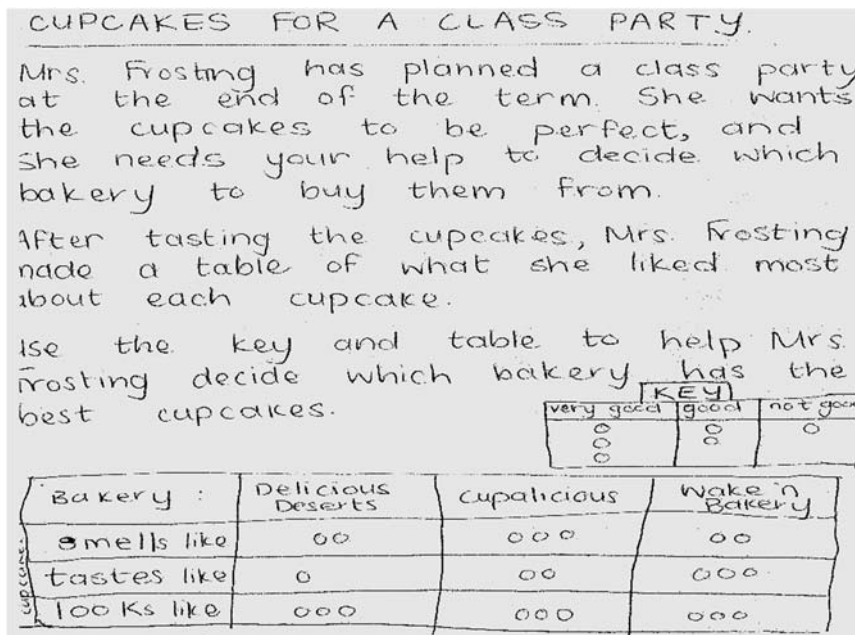 CUPCAKES FOR A CLASS PARTY.
Mrs. Frosting has planned a class party
at the end of the term. She wants
the cupcakes to be perfect, and
She needs your help to decide which
bakery to buy them from.
After tasting the cupcakes, Mrs. Frosting
made a table of what she liked most
about each cupcake.
Use the key and table to help Mrs.
Frosting decide which bakery has the
best cupcakes.
KEY
very good good not good
Bakery : Delicious Deserts Cupalicious Wake 'n Bakery
smells like
tastes like
looks like
cupcake